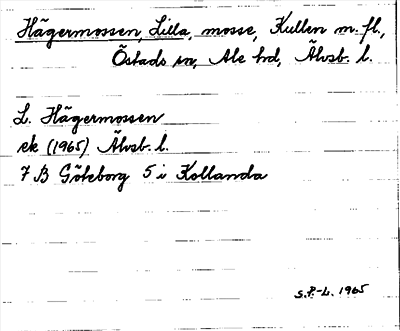 Hägermossen, Lilla, mosse, Kullen m. fl.,
Östads sn, Ale hd, Älvsb. l.
L. Hägermossen
ek (1965) Älvsb. l.
7 B Göteborg 5 i Kollanda
S.P-L. 1965